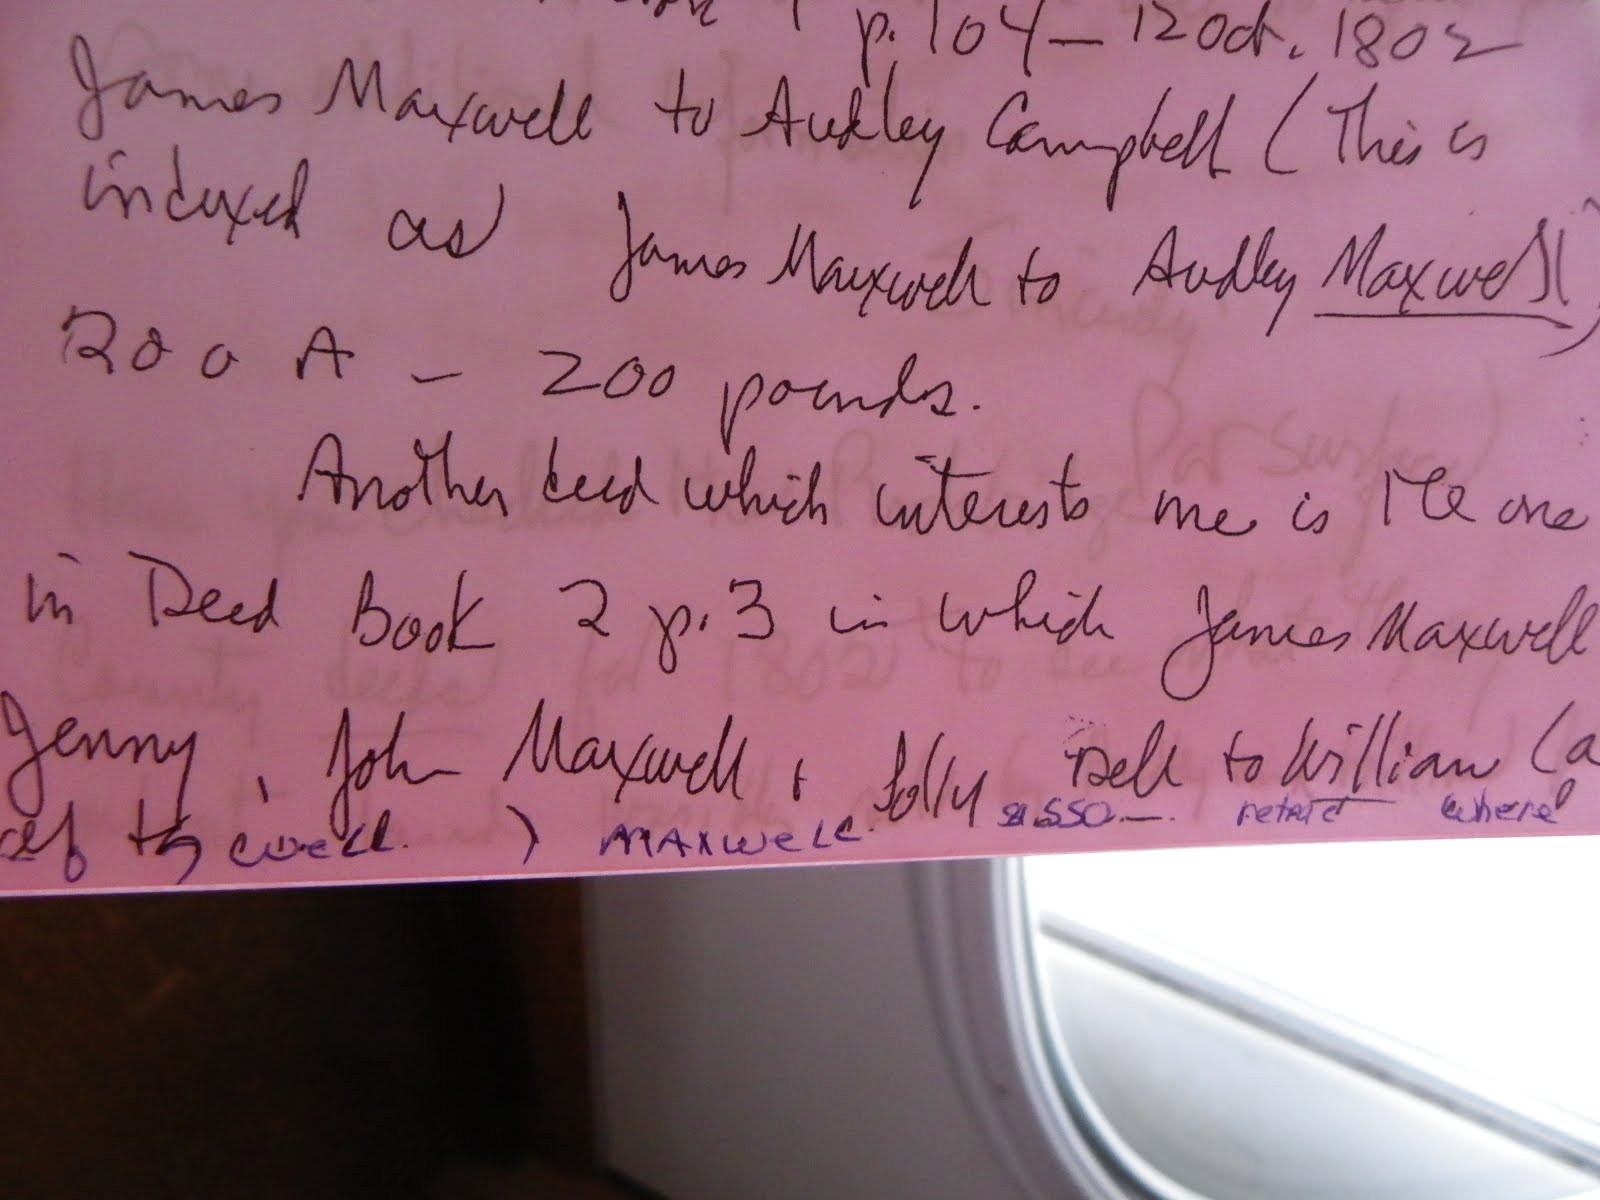 p. 104 — 12 Oct. 1802
James Maxwell to Audley Campbell (This is
indexed as James Maxwell to Audley Maxwell)
200 A – 200 pounds.
Another deed which interests me is the one
in Deed Book 2 p. 3 in which James Maxwell
Jenny, John Maxwell + Polly sell to William (a
well. ) MAXWELL. where